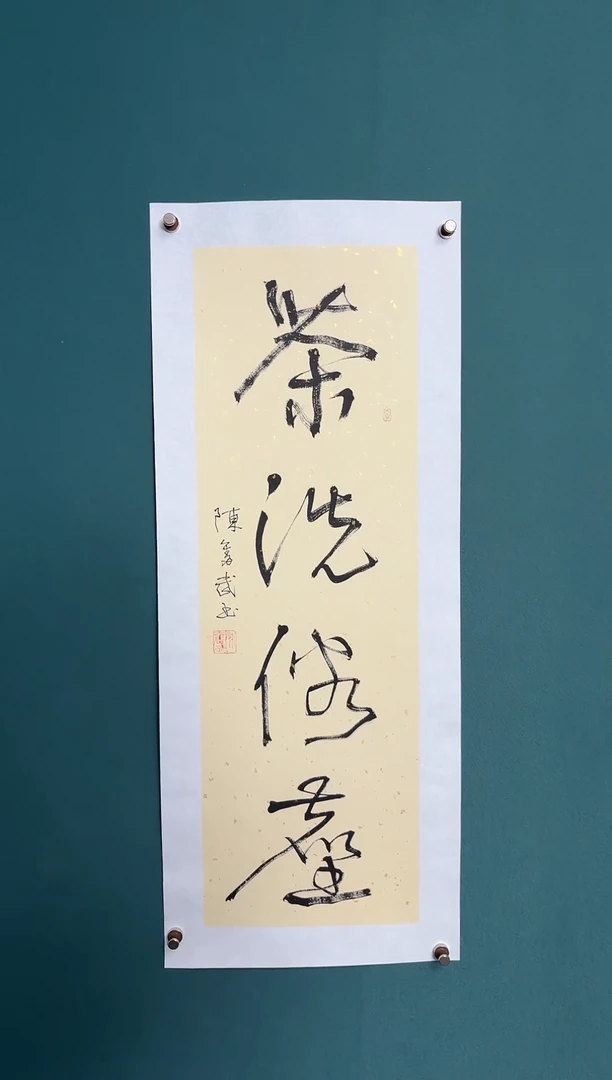 茶洗俗塵
陳武书